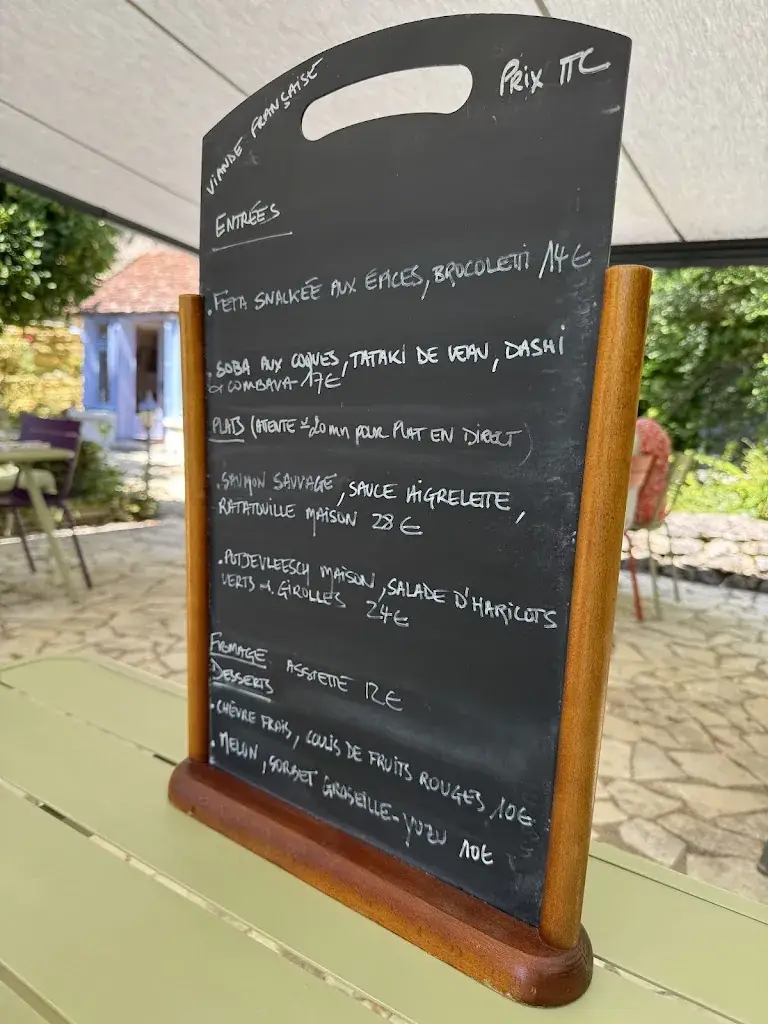 VIANDE FRANÇAISE
PRIX TTC
ENTRÉES
. FETA SNACKÉE AUX ÉPICES, BROCOLETTI 14€
. SOBA AUX COQUES, TATAKI DE VEAU, DASHI
COMBAVA 17€
PLATS (ATTENTE ± 20 mn POUR PLAT EN DIRECT)
. SAUMON SAUVAGE, SAUCE AIGRELETTE,
RATATOUILLE MAISON 28€
. POTJEVLEESCH MAISON, SALADE D'HARICOTS
VERTS GIROLLES 24€
FROMAGE ASSIETTE 12€
DESSERTS
. CHÈVRE FRAIS, COULIS DE FRUITS ROUGES 10€
. MELON, SORBET GROSEILLE-YUZU 10€